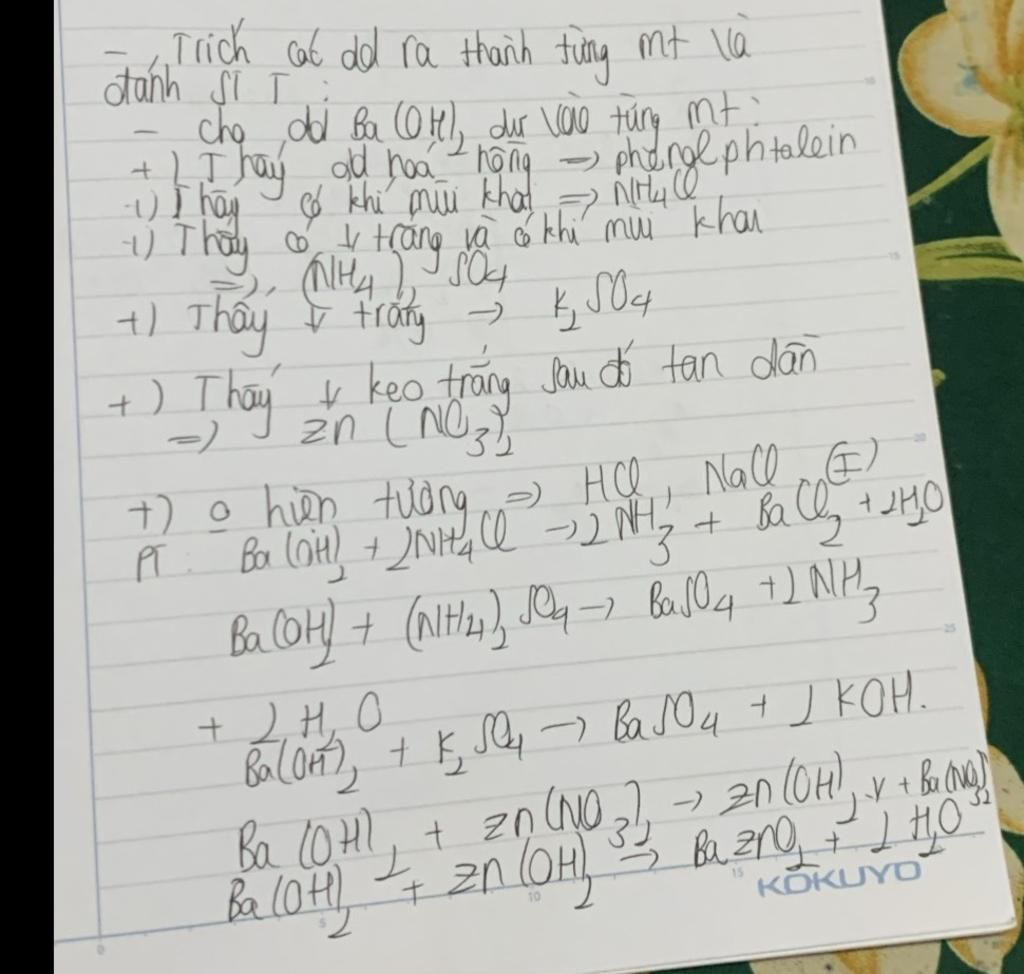 - Trích các dd ra thành từng mt và
đánh STT :
- cho dd Ba(OH)2 dư vào từng mt:
+) Thấy dd hoá hồng => phenolphtalein
+) Thấy có khí mùi khai => NH4Cl
+) Thấy có ↓ trắng và có khí mùi khai
=> (NH4)2SO4
+) Thấy ↓ trắng -> K2SO4
+) Thấy ↓ keo trắng sau đó tan dần
=> Zn(NO3)2
+) 0 hiện tượng => HCl, NaCl (I)
PT: Ba(OH)2 + 2NH4Cl -> 2NH3 + BaCl2 + 2H2O
Ba(OH)2 + (NH4)2SO4 -> BaSO4 + 2NH3
+ 2H2O
Ba(OH)2 + K2SO4 -> BaSO4 + 2KOH.
Ba(OH)2 + Zn(NO3)2 -> Zn(OH)2 ↓ + Ba(NO3)2
Ba(OH)2 + Zn(OH)2 -> BaZnO2 + 2H2O
KOKUYO